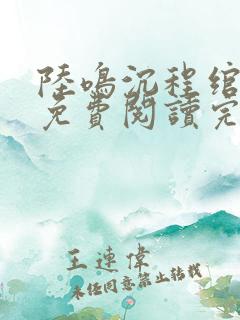 陸鳴沉程綰
免費閱讀完
王連偉
未经同意禁止转载